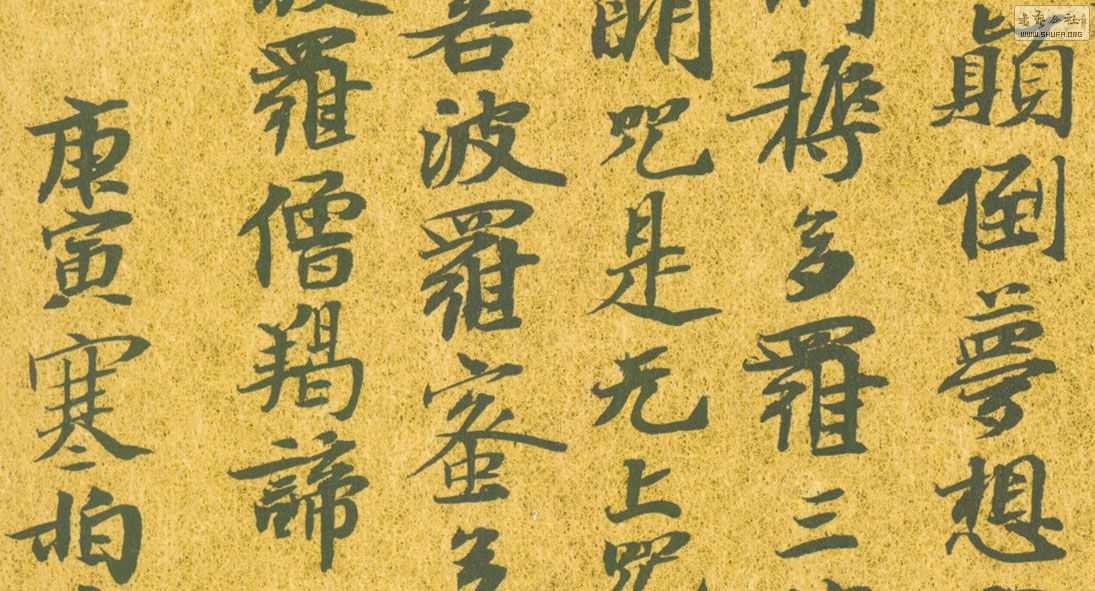 顛倒夢想
耨多羅三
明咒是无上咒
若波羅蜜多
波羅僧羯諦
庚寅寒柏
書藝公社
WWW.SHUFA.ORG